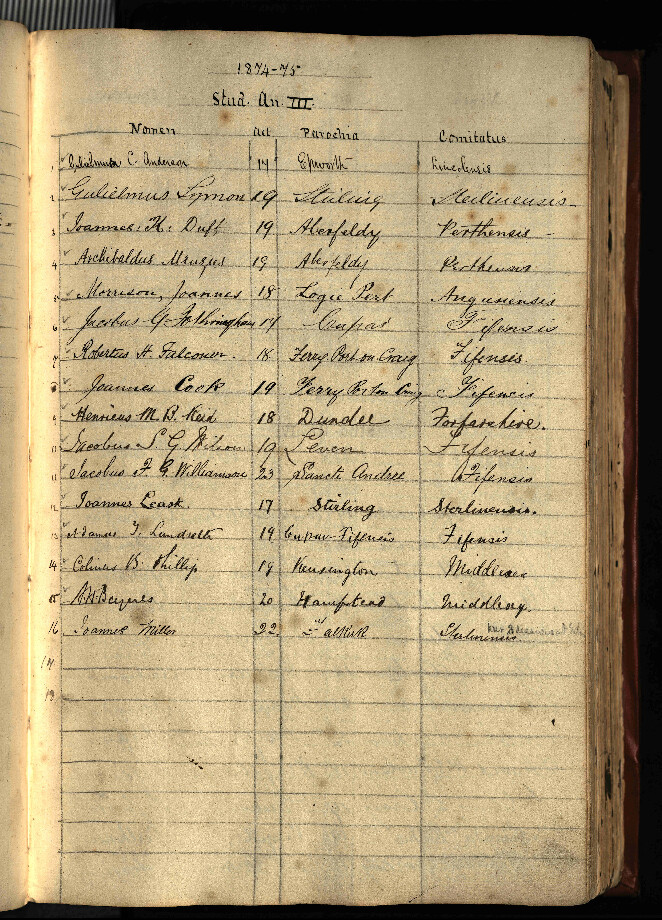 1874-75
Stud. An. III.
Nomen Aet Parochia Comitatus
1 Gulielmus C. Anderson 17 Epworth Lincolnensis
2 Gulielmus 19 Stirling
3 Joannes H. Duff 19 Aberfeldy Perthensis
4 Archibaldus 19 Aberfeldy
5 Morrison, Joannes 18 Logie Pert Angusiensis
6 Jacobus G. Fothringham 17 Cupar Fifensis
7 Robertus H. Falconer. 18 Ferry Port on Craig Fifensis
8 Joannes Cook 19 Ferry Port on Craig Fifensis
9 Henricus M. B. Reid 18 Dundee Forfarshire.
10 Jacobus S G Wilson 19 Leven Fifensis
11 Jacobus F. G. Williamson 23 Sancti Andreae Fifensis
12 Joannes Leask. 17 Stirling Sterlinensis.
13 Adamus T. 19 Cupar-Fifensis Fifensis
14 Colinus B. Phillip 19 Kensington Middlesex
15 20 Hampstead
16 Joannes Miller 22 Falkirk
17
18